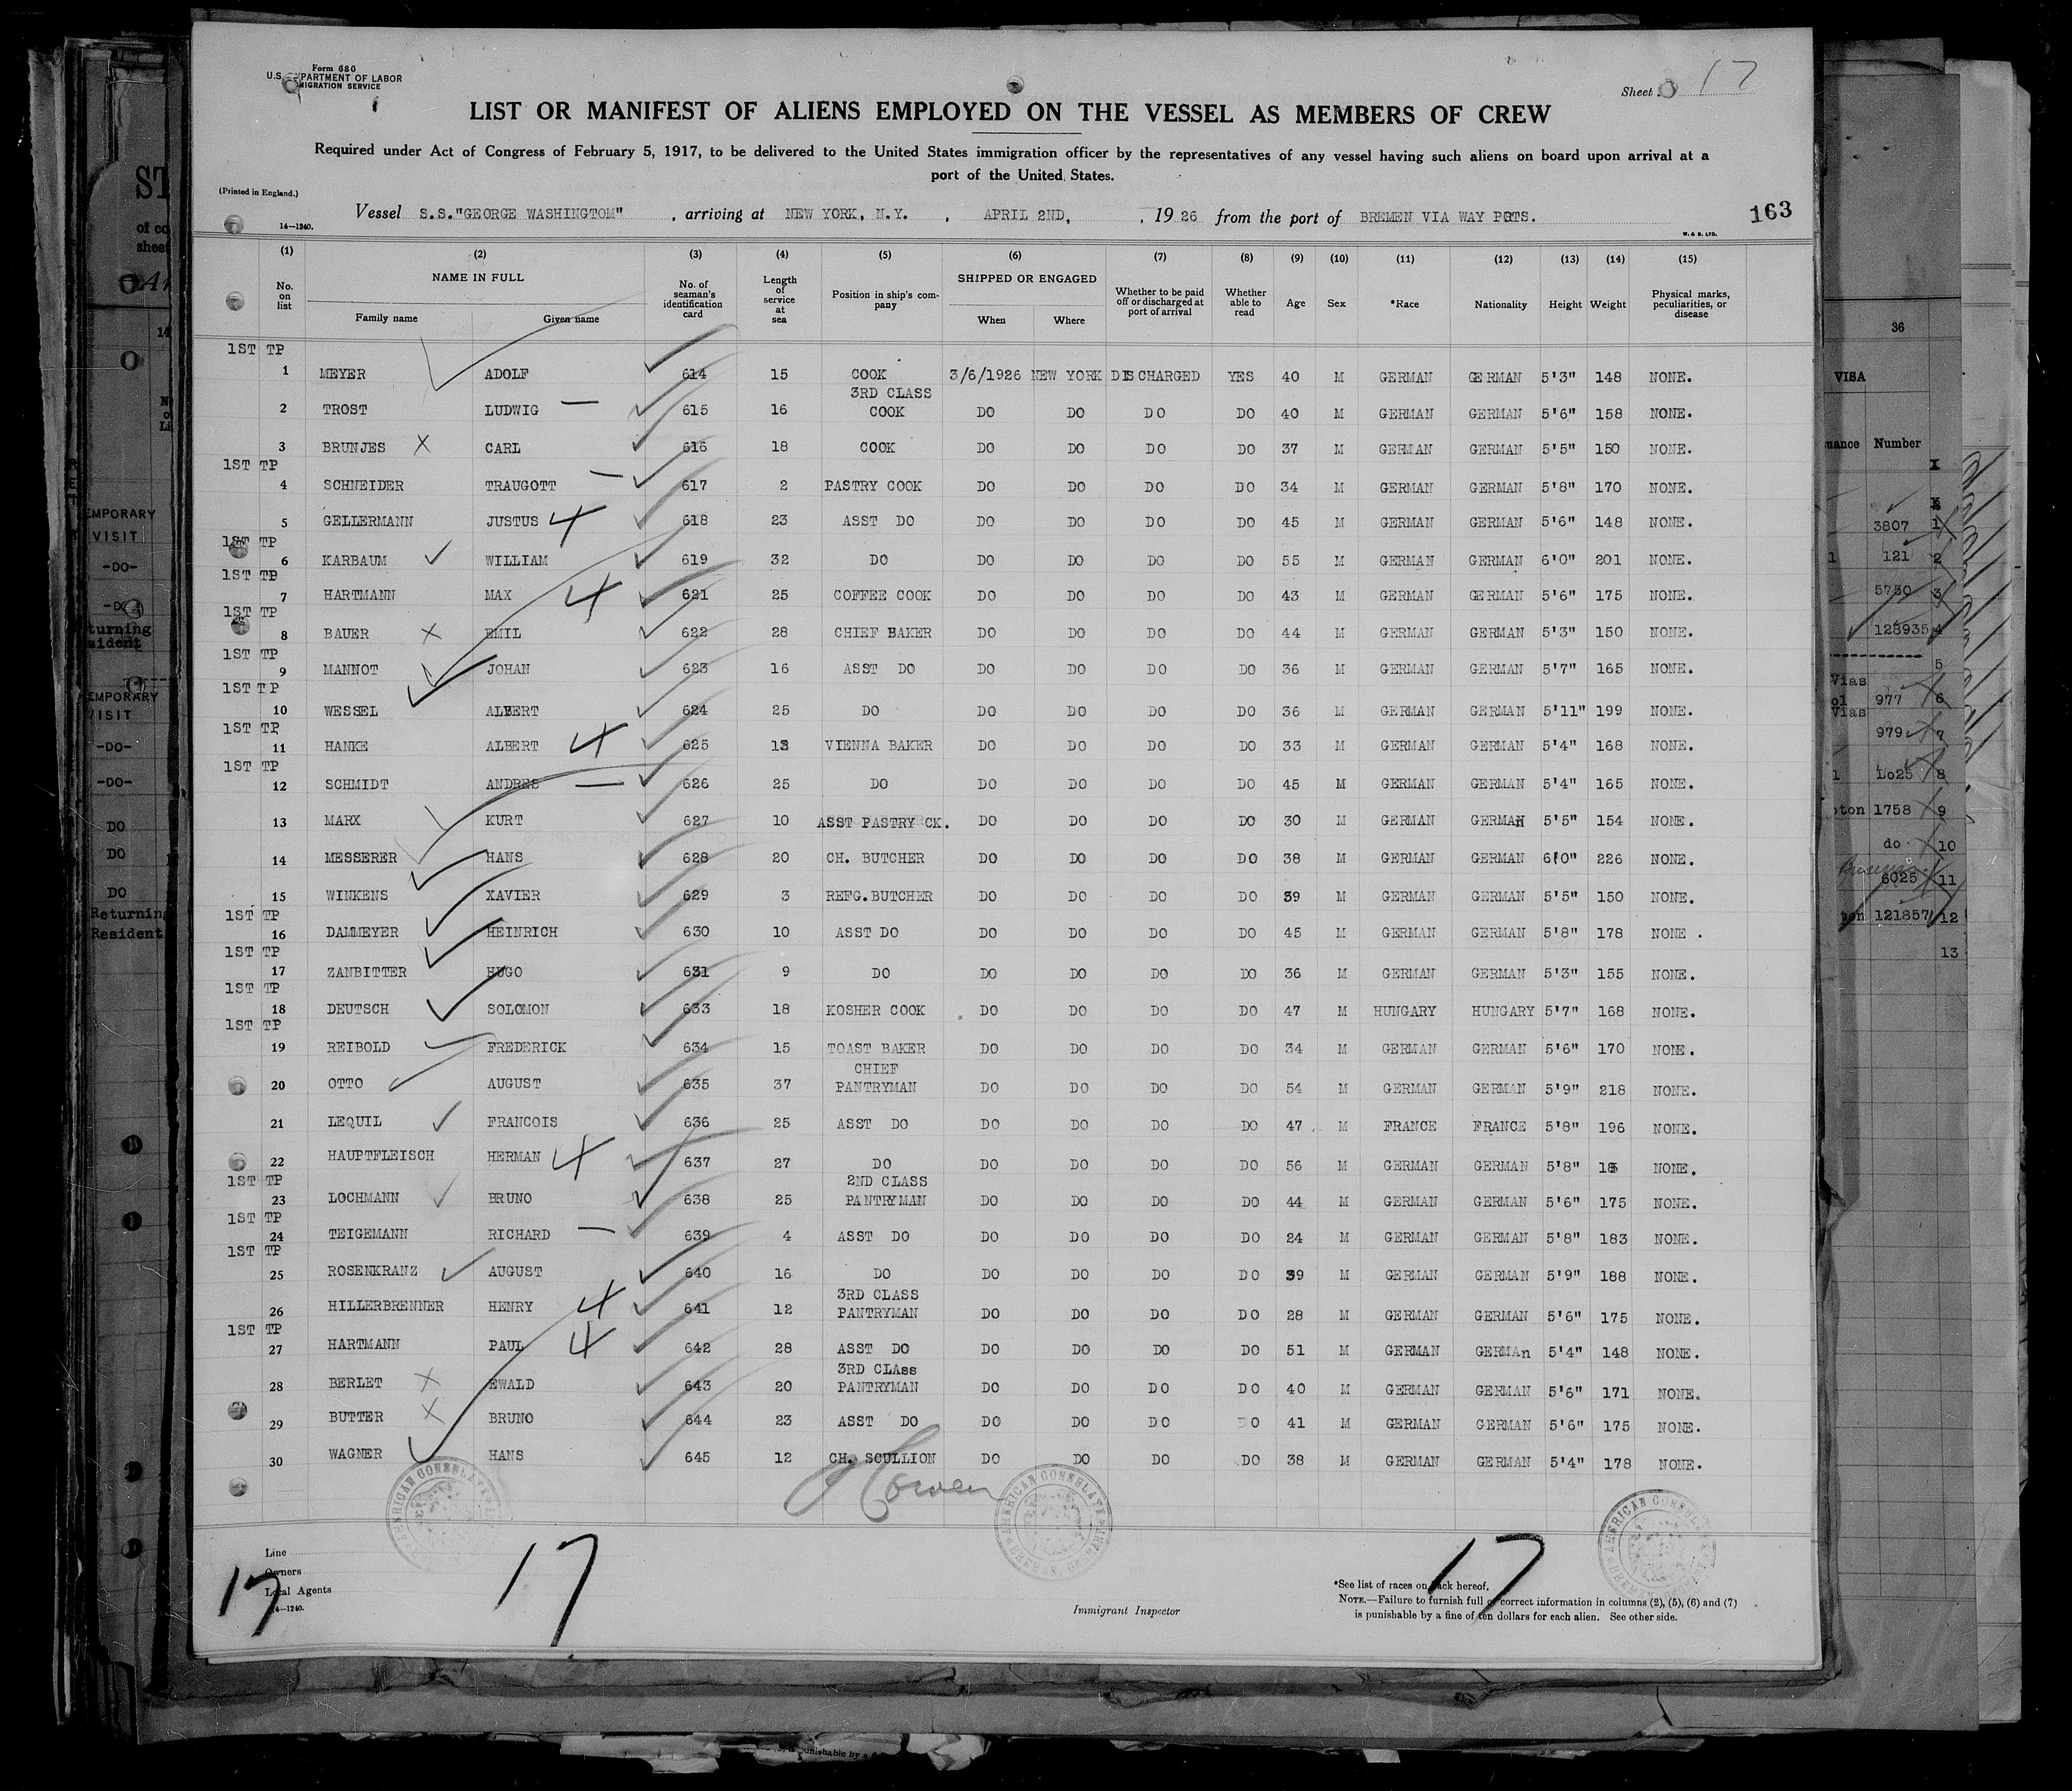 Form 680
U.S. DEPARTMENT OF LABOR
IMMIGRATION SERVICE
Sheet 17
LIST OR MANIFEST OF ALIENS EMPLOYED ON THE VESSEL AS MEMBERS OF CREW
Required under Act of Congress of February 5, 1917, to be delivered to the United States immigration officer by the representatives of any vessel having such aliens on board upon arrival at a
port of the United States.
(Printed in England.)
Vessel S.S."GEORGE WASHINGTOM" , arriving at NEW YORK, N.Y. , APRIL 2ND, , 19 26 from the port of BREMEN VIA WAY PORTS. 163
14—1240. W. & S. LTD.
(1) (2) (3) (4) (5) (6) (7) (8) (9) (10) (11) (12) (13) (14) (15)
No. on list NAME IN FULL Family name Given name No. of seaman's identification card Length of service at sea Position in ship's company SHIPPED OR ENGAGED When Where Whether to be paid off or discharged at port of arrival Whether able to read Age Sex *Race Nationality Height Weight Physical marks, peculiarities, or disease
1ST TP
1 MEYER ADOLF 614 15 COOK 3/6/1926 NEW YORK DISCHARGED YES 40 M GERMAN GERMAN 5'3" 148 NONE.
2 TROST LUDWIG 615 16 3RD CLASS COOK DO DO DO DO 40 M GERMAN GERMAN 5'6" 158 NONE.
3 BRUNJES X CARL 616 18 COOK DO DO DO DO 37 M GERMAN GERMAN 5'5" 150 NONE.
1ST TP
4 SCHNEIDER TRAUGOTT 617 2 PASTRY COOK DO DO DO DO 34 M GERMAN GERMAN 5'8" 170 NONE.
5 GELLERMANN JUSTUS 4 618 23 ASST DO DO DO DO DO 45 M GERMAN GERMAN 5'6" 148 NONE.
1ST TP
6 KARBAUM WILLIAM 619 32 DO DO DO DO DO 55 M GERMAN GERMAN 6'0" 201 NONE.
1ST TP
7 HARTMANN MAX 4 621 25 COFFEE COOK DO DO DO DO 43 M GERMAN GERMAN 5'6" 175 NONE.
1ST TP
8 BAUER X EMIL 622 28 CHIEF BAKER DO DO DO DO 44 M GERMAN GERMAN 5'3" 150 NONE.
1ST TP
9 MANNOT JOHAN 623 16 ASST DO DO DO DO DO 36 M GERMAN GERMAN 5'7" 165 NONE.
1ST TP
10 WESSEL ALBERT 624 25 DO DO DO DO DO 36 M GERMAN GERMAN 5'11" 199 NONE.
1ST TP
11 HANKE ALBERT 4 625 13 VIENNA BAKER DO DO DO DO 33 M GERMAN GERMAN 5'4" 168 NONE.
1ST TP
12 SCHMIDT ANDRES 626 25 DO DO DO DO DO 45 M GERMAN GERMAN 5'4" 165 NONE.
13 MARX KURT 627 10 ASST PASTRY CK. DO DO DO DO 30 M GERMAN GERMAN 5'5" 154 NONE.
14 MESSERER HANS 628 20 CH. BUTCHER DO DO DO DO 38 M GERMAN GERMAN 6'0" 226 NONE.
15 WINKENS XAVIER 629 3 REFG.BUTCHER DO DO DO DO 39 M GERMAN GERMAN 5'5" 150 NONE.
1ST TP
16 DAMMEYER HEINRICH 630 10 ASST DO DO DO DO DO 45 M GERMAN GERMAN 5'8" 178 NONE .
1ST TP
17 ZANBITTER HUGO 631 9 DO DO DO DO DO 36 M GERMAN GERMAN 5'3" 155 NONE.
1ST TP
18 DEUTSCH SOLOMON 633 18 KOSHER COOK DO DO DO DO 47 M HUNGARY HUNGARY 5'7" 168 NONE.
1ST TP
19 REIBOLD FREDERICK 634 15 TOAST BAKER DO DO DO DO 34 M GERMAN GERMAN 5'6" 170 NONE.
20 OTTO AUGUST 635 37 CHIEF PANTRYMAN DO DO DO DO 54 M GERMAN GERMAN 5'9" 218 NONE.
21 LEQUIL FRANCOIS 636 25 ASST DO DO DO DO DO 47 M FRANCE FRANCE 5'8" 196 NONE.
22 HAUPTFLEISCH HERMAN 4 637 27 DO DO DO DO DO 56 M GERMAN GERMAN 5'8" NONE.
1ST TP
23 LOCHMANN BRUNO 638 25 2ND CLASS PANTRYMAN DO DO DO DO 44 M GERMAN GERMAN 5'6" 175 NONE.
1ST TP
24 TEIGEMANN RICHARD 639 4 ASST DO DO DO DO DO 24 M GERMAN GERMAN 5'8" 183 NONE.
1ST TP
25 ROSENKRANZ AUGUST 640 16 DO DO DO DO DO 39 M GERMAN GERMAN 5'9" 188 NONE.
26 HILLERBRENNER HENRY 4 641 12 3RD CLASS PANTRYMAN DO DO DO DO 28 M GERMAN GERMAN 5'6" 175 NONE.
1ST TP
27 HARTMANN PAUL 4 642 28 ASST DO DO DO DO DO 51 M GERMAN GERMAn 5'4" 148 NONE.
28 BERLET X EWALD 643 20 3RD CLAss PANTRYMAN DO DO DO DO 40 M GERMAN GERMAN 5'6" 171 NONE.
29 BUTTER X BRUNO 644 23 ASST DO DO DO DO DO 41 M GERMAN GERMAN 5'6" 175 NONE.
30 WAGNER HANS 645 12 CH. SCULLION DO DO DO DO 38 M GERMAN GERMAN 5'4" 178 NONE.
AMERICAN CONSULATE BREMEN
AMERICAN CONSULATE BREMEN
AMERICAN CONSULATE BREMEN
Line
Owners
Local Agents
14—1240.
17 17 17
Immigrant Inspector
*See list of races on back hereof.
NOTE.—Failure to furnish full or correct information in columns (2), (5), (6) and (7)
is punishable by a fine of ten dollars for each alien. See other side.
EMPORARY
VISIT
-DO-
EMPORARY
VISIT
-DO-
-DO-
DO
DO
DO
Returning
Resident
36
VISA
Number
3807 1
121 2
5750 3
128935 4
5
977 6
979 7
Lo25 8
1758 9
do 10
6025 11
121857 12
13